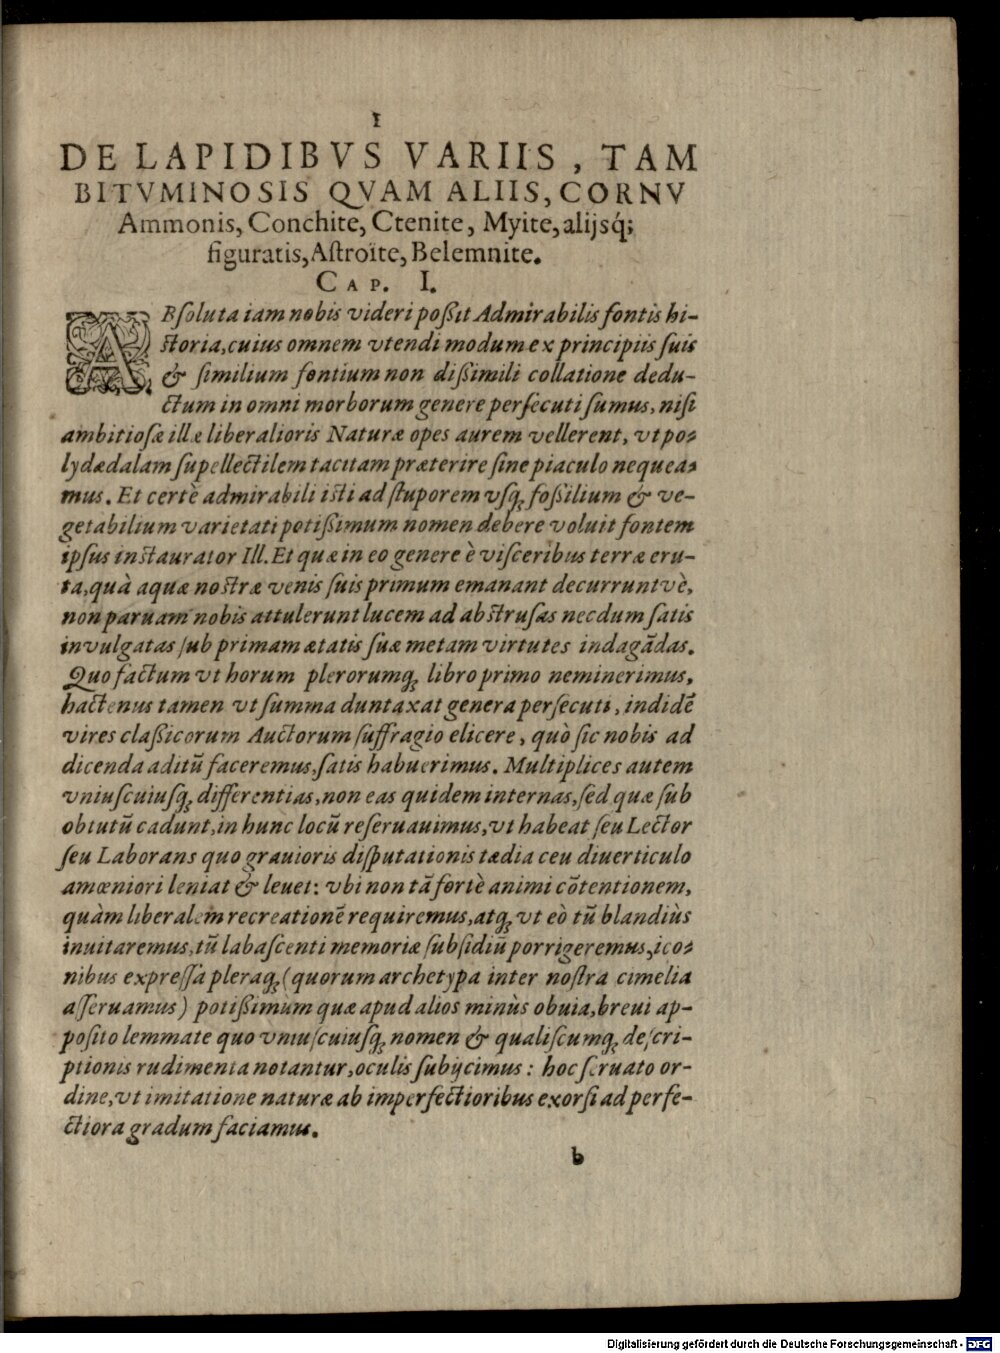 1
DE LAPIDIBVS VARIIS, TAM
BITVMINOSIS QVAM ALIIS, CORNV
Ammonis, Conchite, Ctenite, Myite, alijsq́;
figuratis, Aſtroïte, Belemnite.
CAP. I.
ABſoluta iam nobis videri poßit Admirabilis fontis hi-
ſtoria, cuius omnem vtendi modum ex principiis ſuis
& ſimilium fontium non dißimili collatione dedu-
ctum in omni morborum genere perſecuti ſumus, niſi
ambitioſæ illæ liberalioris Naturæ opes aurem vellerent, vt po-
lydædalam ſupellectilem tacitam præterire ſine piaculo nequea-
mus. Et certè admirabili iſti ad ſtuporem vſq; foßilium & ve-
getabilium varietati potißimum nomen debere voluit fontem
ipſus inſtaurator Ill. Et quæ in eo genere è viſceribus terræ eru-
ta, quà aquæ noſtræ venis ſuis primum emanant decurruntvè,
non paruam nobis attulerunt lucem ad abſtruſas necdum ſatis
invulgatas ſub primam ætatis ſuæ metam virtutes indagādas.
Quo factum vt horum plerorumq; libro primo neminerimus,
hactenus tamen vt ſumma duntaxat genera perſecuti, indidē
vires claßicorum Auctorum ſuffragio elicere, quò ſic nobis ad
dicenda aditū faceremus, ſatis habuerimus. Multiplices autem
vniuſcuiuſq; differentias, non eas quidem internas, ſed quæ ſub
obtutū cadunt, in hunc locū reſeruauimus, vt habeat ſeu Lector
ſeu Laborans quo grauioris diſputationis tædia ceu diuerticulo
amœniori leniat & leuet: vbi non tā fortè animi cōtentionem,
quàm liberalem recreationē requiremus, atq; vt eò tū blandiùs
inuitaremus, tū labaſcenti memoriæ ſubſidiū porrigeremus, ico-
nibus expreſſa pleraq; (quorum archetypa inter noſtra cimelia
aſſeruamus) potißimùm quæ apud alios minùs obuia, breui ap-
poſito lemmate quo vniuſcuiuſq; nomen & qualiſcumq; deſcri-
ptionis rudimenta notantur, oculis ſubijcimus: hoc ſeruato or-
dine, vt imitatione naturæ ab imperfectioribus exorſi ad perfe-
ctiora gradum faciamus.
b
Digitalisierung gefördert durch die Deutsche Forschungsgemeinschaft - DFG